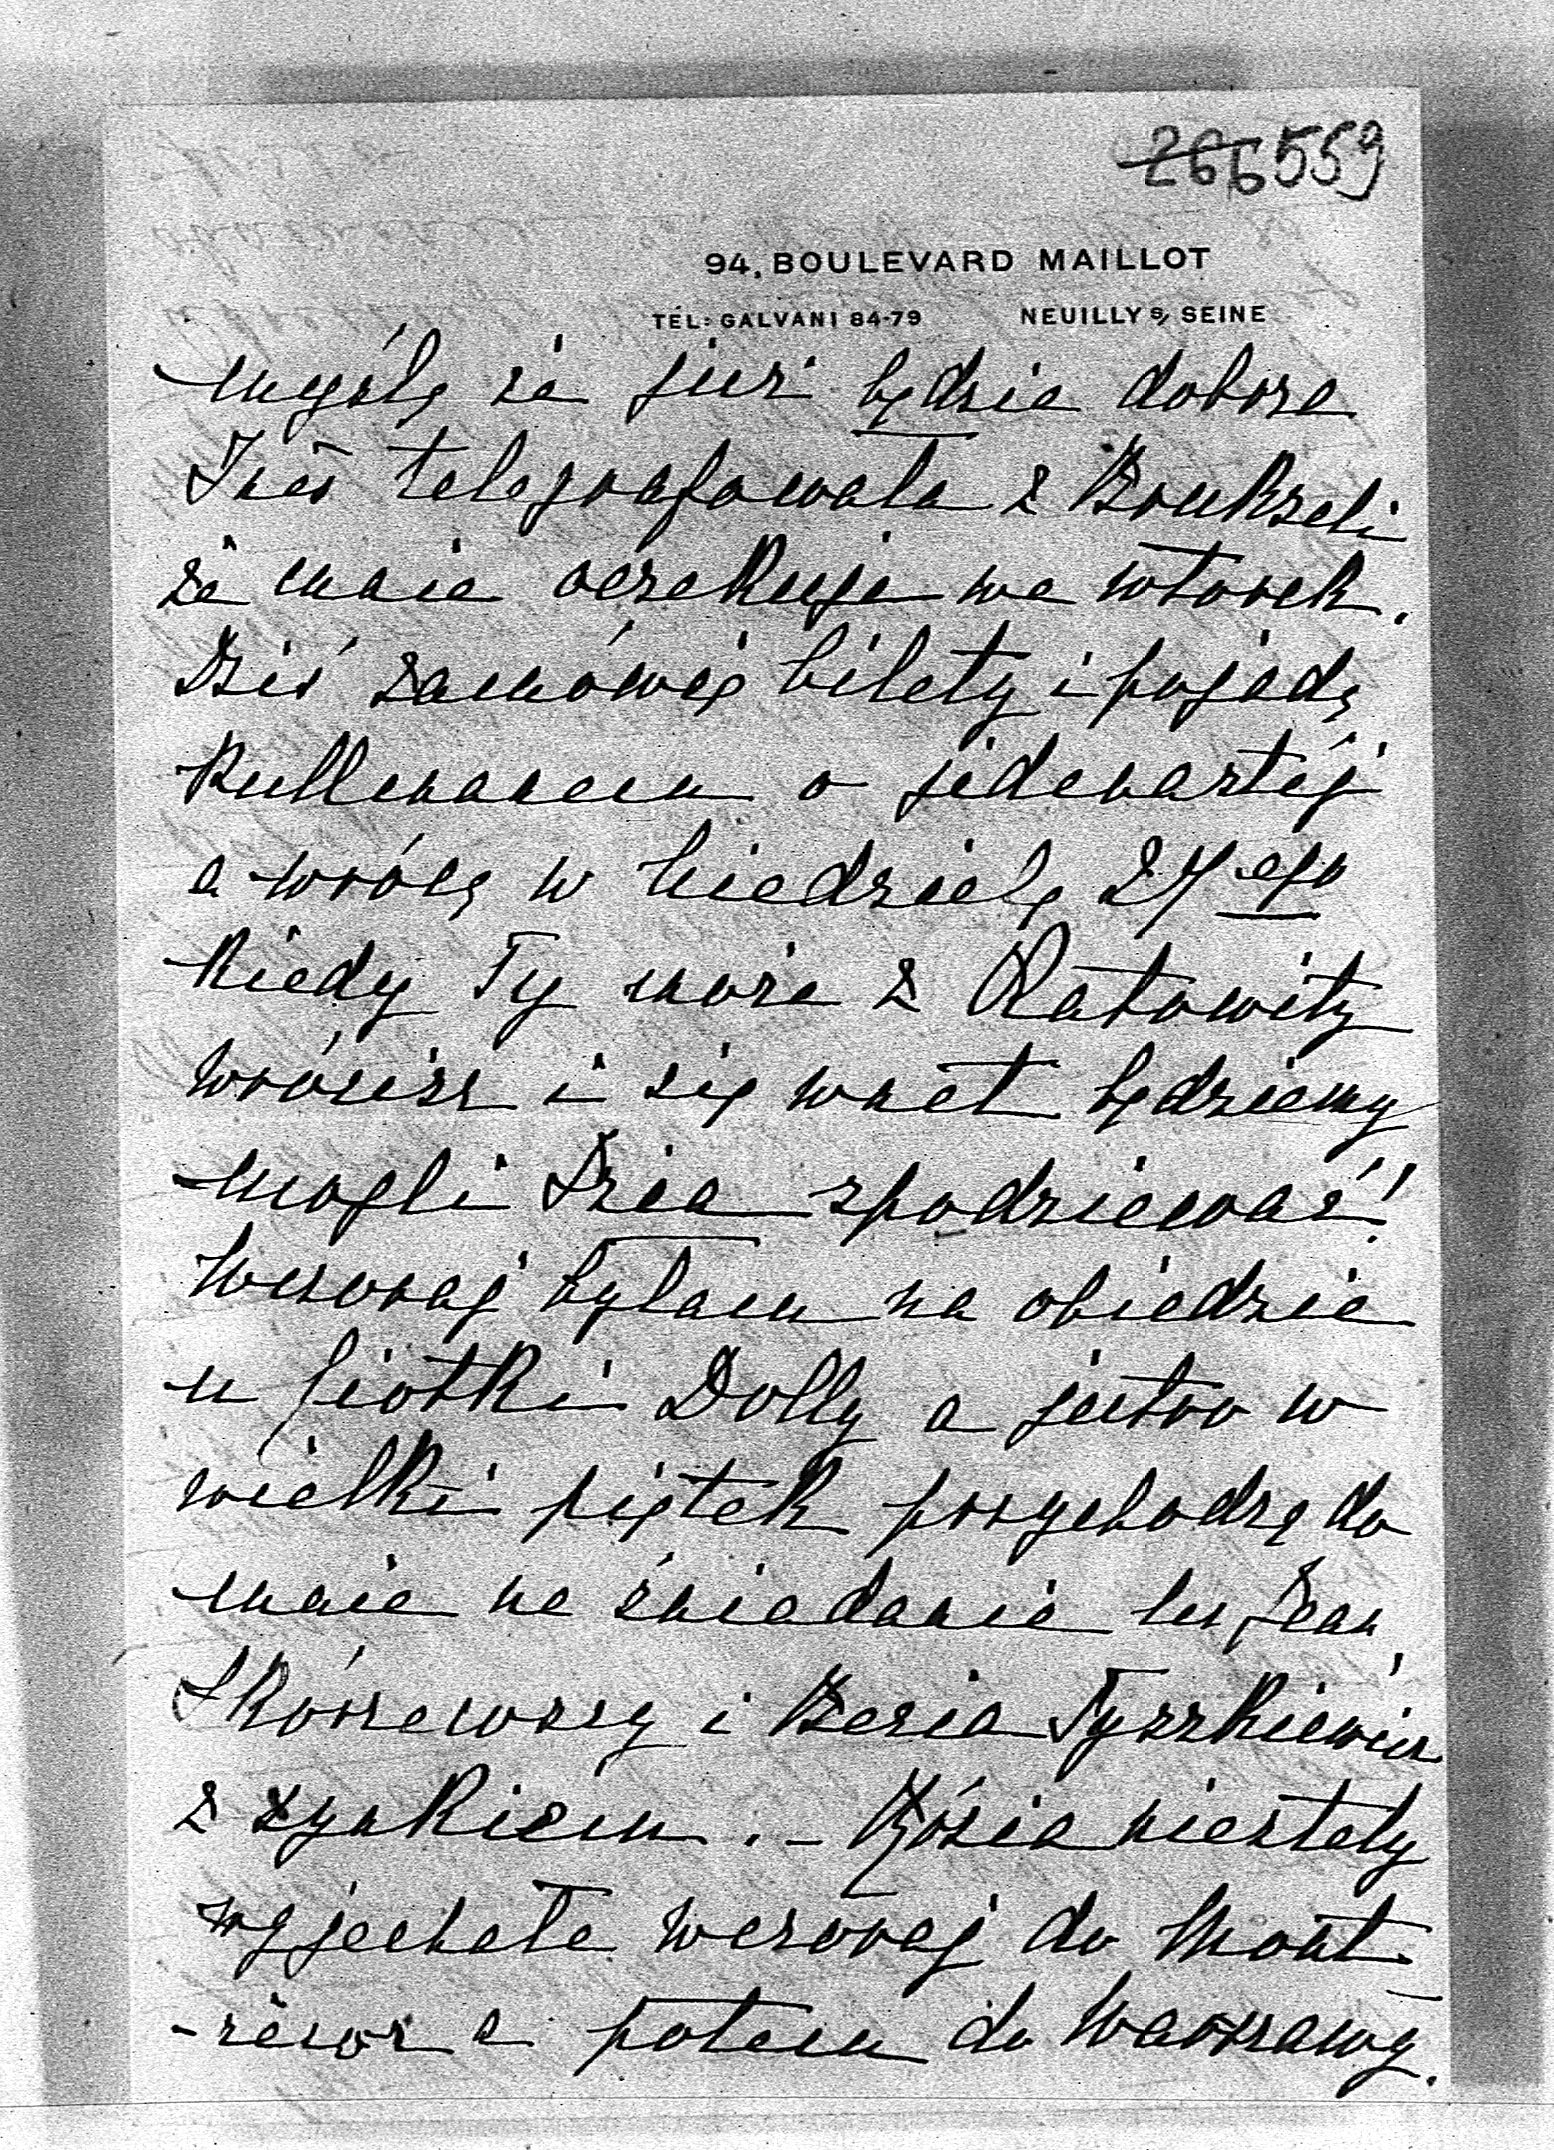 266 559
94, BOULEVARD MAILLOT
TÉL: GALVANI 84-79 NEUILLY S/ SEINE
myślę że już będzie dobrze
Inés telegrafowała z Brukseli
że mnie oczekuje we wtorek.
Dziś zamówię bilety i pojadę
Pullmanem o jedenastéj
a wrócę w niedzielę 27ego
Kiedy Ty może z Ratowitz
wrócisz i się wnet będziemy
mogli Dzien spodziewać!
Wczoraj byłam na obiedzie
u ciotki Dolly a jutro w
wielki piątek przychodzą do
mnie na śniadanie Jean
Skórzewscy i Benia Tyszkiewicz
z synkiem. - Rózia niestety
wyjechała wczoraj do Mont-
-résor a potem do Warszawy.